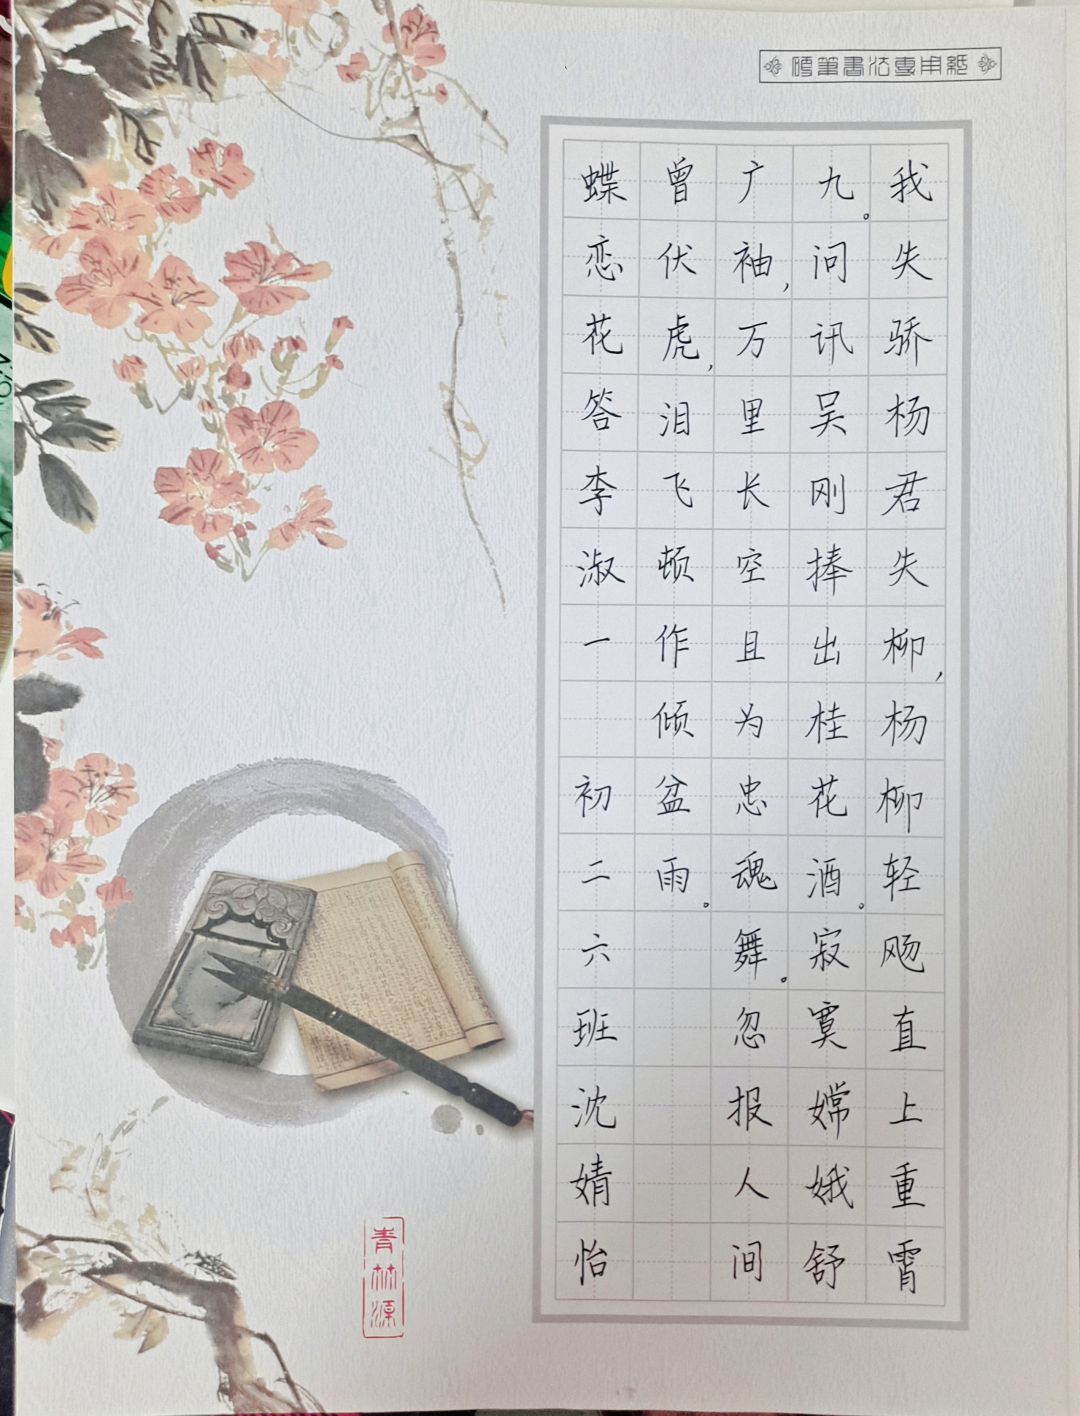 硬筆書法專用紙
我失骄杨君失柳，杨柳轻飏直上重霄
九。问讯吴刚捧出桂花酒。寂寞嫦娥舒
广袖，万里长空且为忠魂舞。忽报人间
曾伏虎，泪飞顿作倾盆雨。
蝶恋花答李淑一 初二六班沈婧怡
青林源